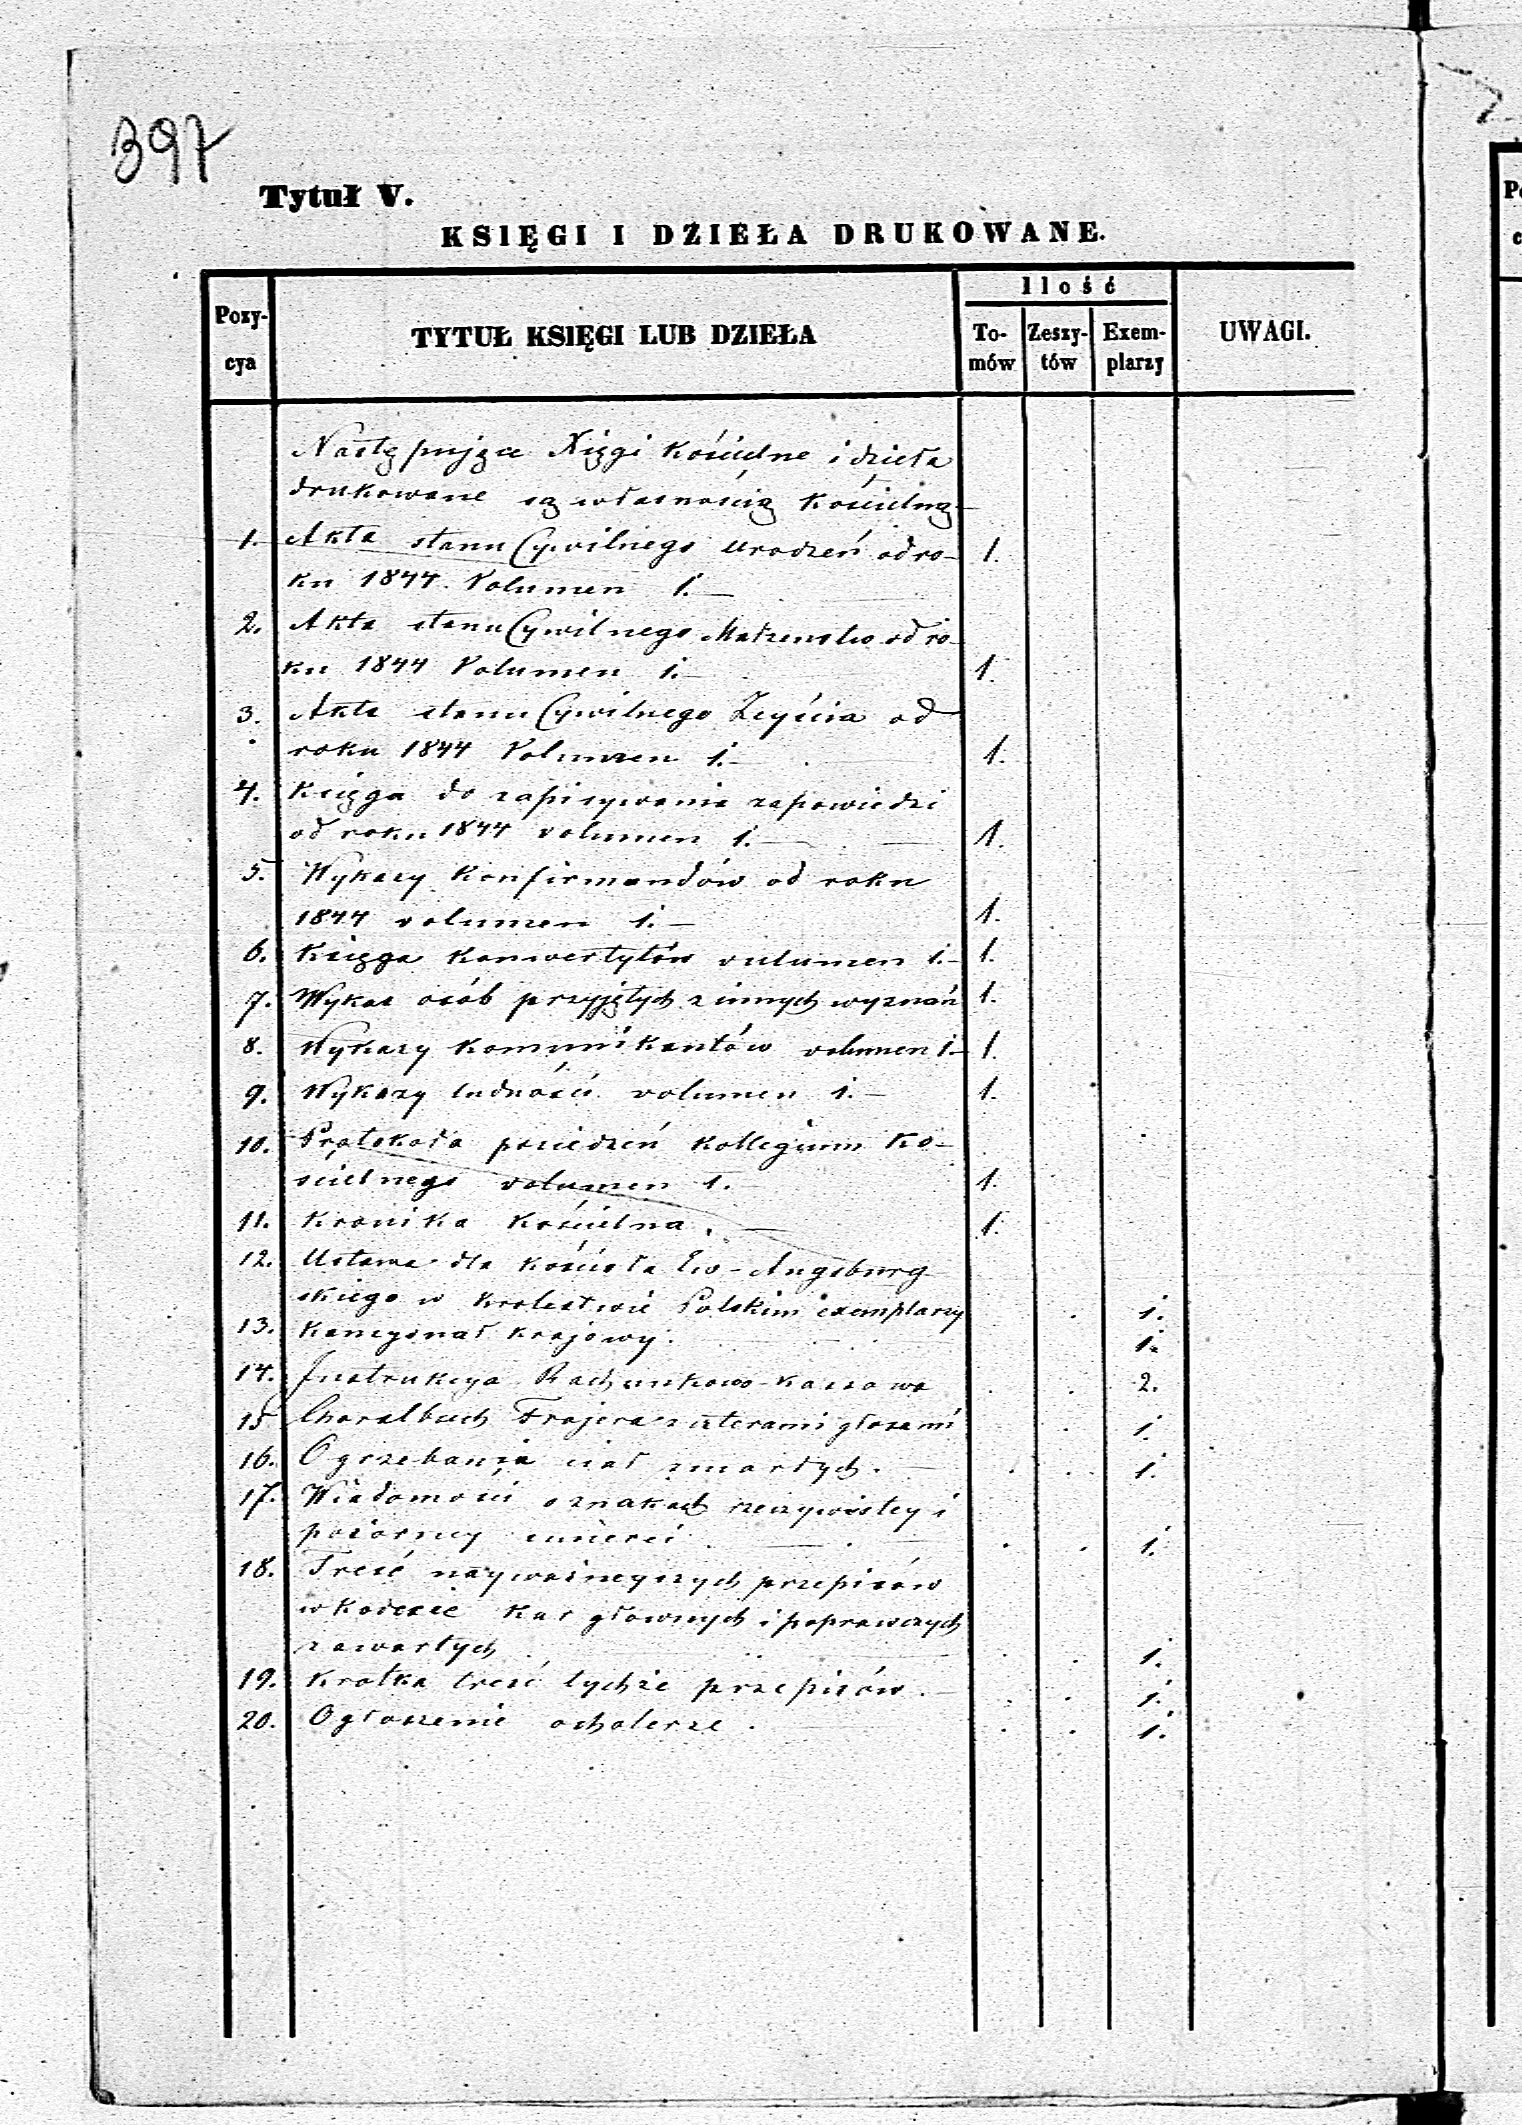 397
Tytuł V.
KSIĘGI I DZIEŁA DRUKOWANE.
Pozy-cya
TYTUŁ KSIĘGI LUB DZIEŁA
Ilość
To-mów
Zeszy-tów
Exem-plarzy
UWAGI.
Następujące Xięgi kościelne i dzieła
drukowane są własnością kościelną
1. Akta stanu Cywilnego Urodzeń od ro- 1.
ku 1844 Volumen 1.—
2. Akta stanu Cywilnego Małzenstw od ro-
ku 1844 Volumen 1.— 1.
3. Akta stanu Cywilnego Zeyścia od
roku 1844 Volumen 1.— 1.
4. Księga do zapisywania zapowiedzi
od roku 1844 volumen 1.— 1.
5. Wykazy Konfirmandów od roku
1844 volumen 1.— 1.
6. Księga konwertytów volumen 1.— 1.
7. Wykaz osób przyjętych z innych wyznań 1.
8. Wykazy komunikantów volumen 1.— 1.
9. Wykazy ludności volumen 1.— 1.
10. Protokoła posiedzeń Kollegium Ko-
ścielnego volumen 1.— 1.
11. Kronika kościelna.— 1.
12. Ustawa dla kościoła Ew-Augsburg-
skiego w Krolestwie Polskim exemplarzy 1.
13. Kancyonał krajowy. 1.
14. Instrukcya Rachunkowo-kassowa 2.
15 Choralbuch Frajera z czterami głosami 1.
16. O grzebania ciał zmarłych.— 1.
17. Wiadomość o znakach rzeczywistey i
pozorney śmierci 1.
18. Treść nayważneyszych przepisów
w kodexie kar głownych i poprawczych
zawartych 1.
19. Krotka treść tychże przepisów.— 1.
20. Ogłoszenie o cholerze. 1.